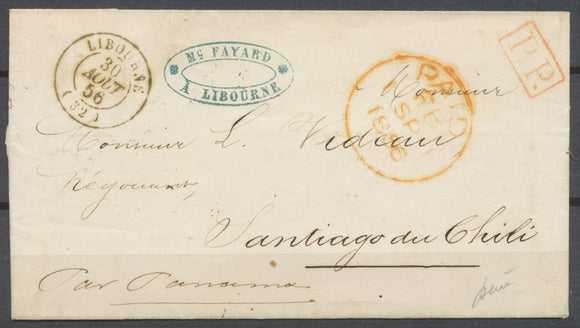 LIBOURNE
30
AOUT
56
(32)
Mc FAYARD
A LIBOURNE
PAID
SP
1856
P.P.
Monsieur
Monsieur L. Videau
Négociant
Santiago du Chili
Par Panama